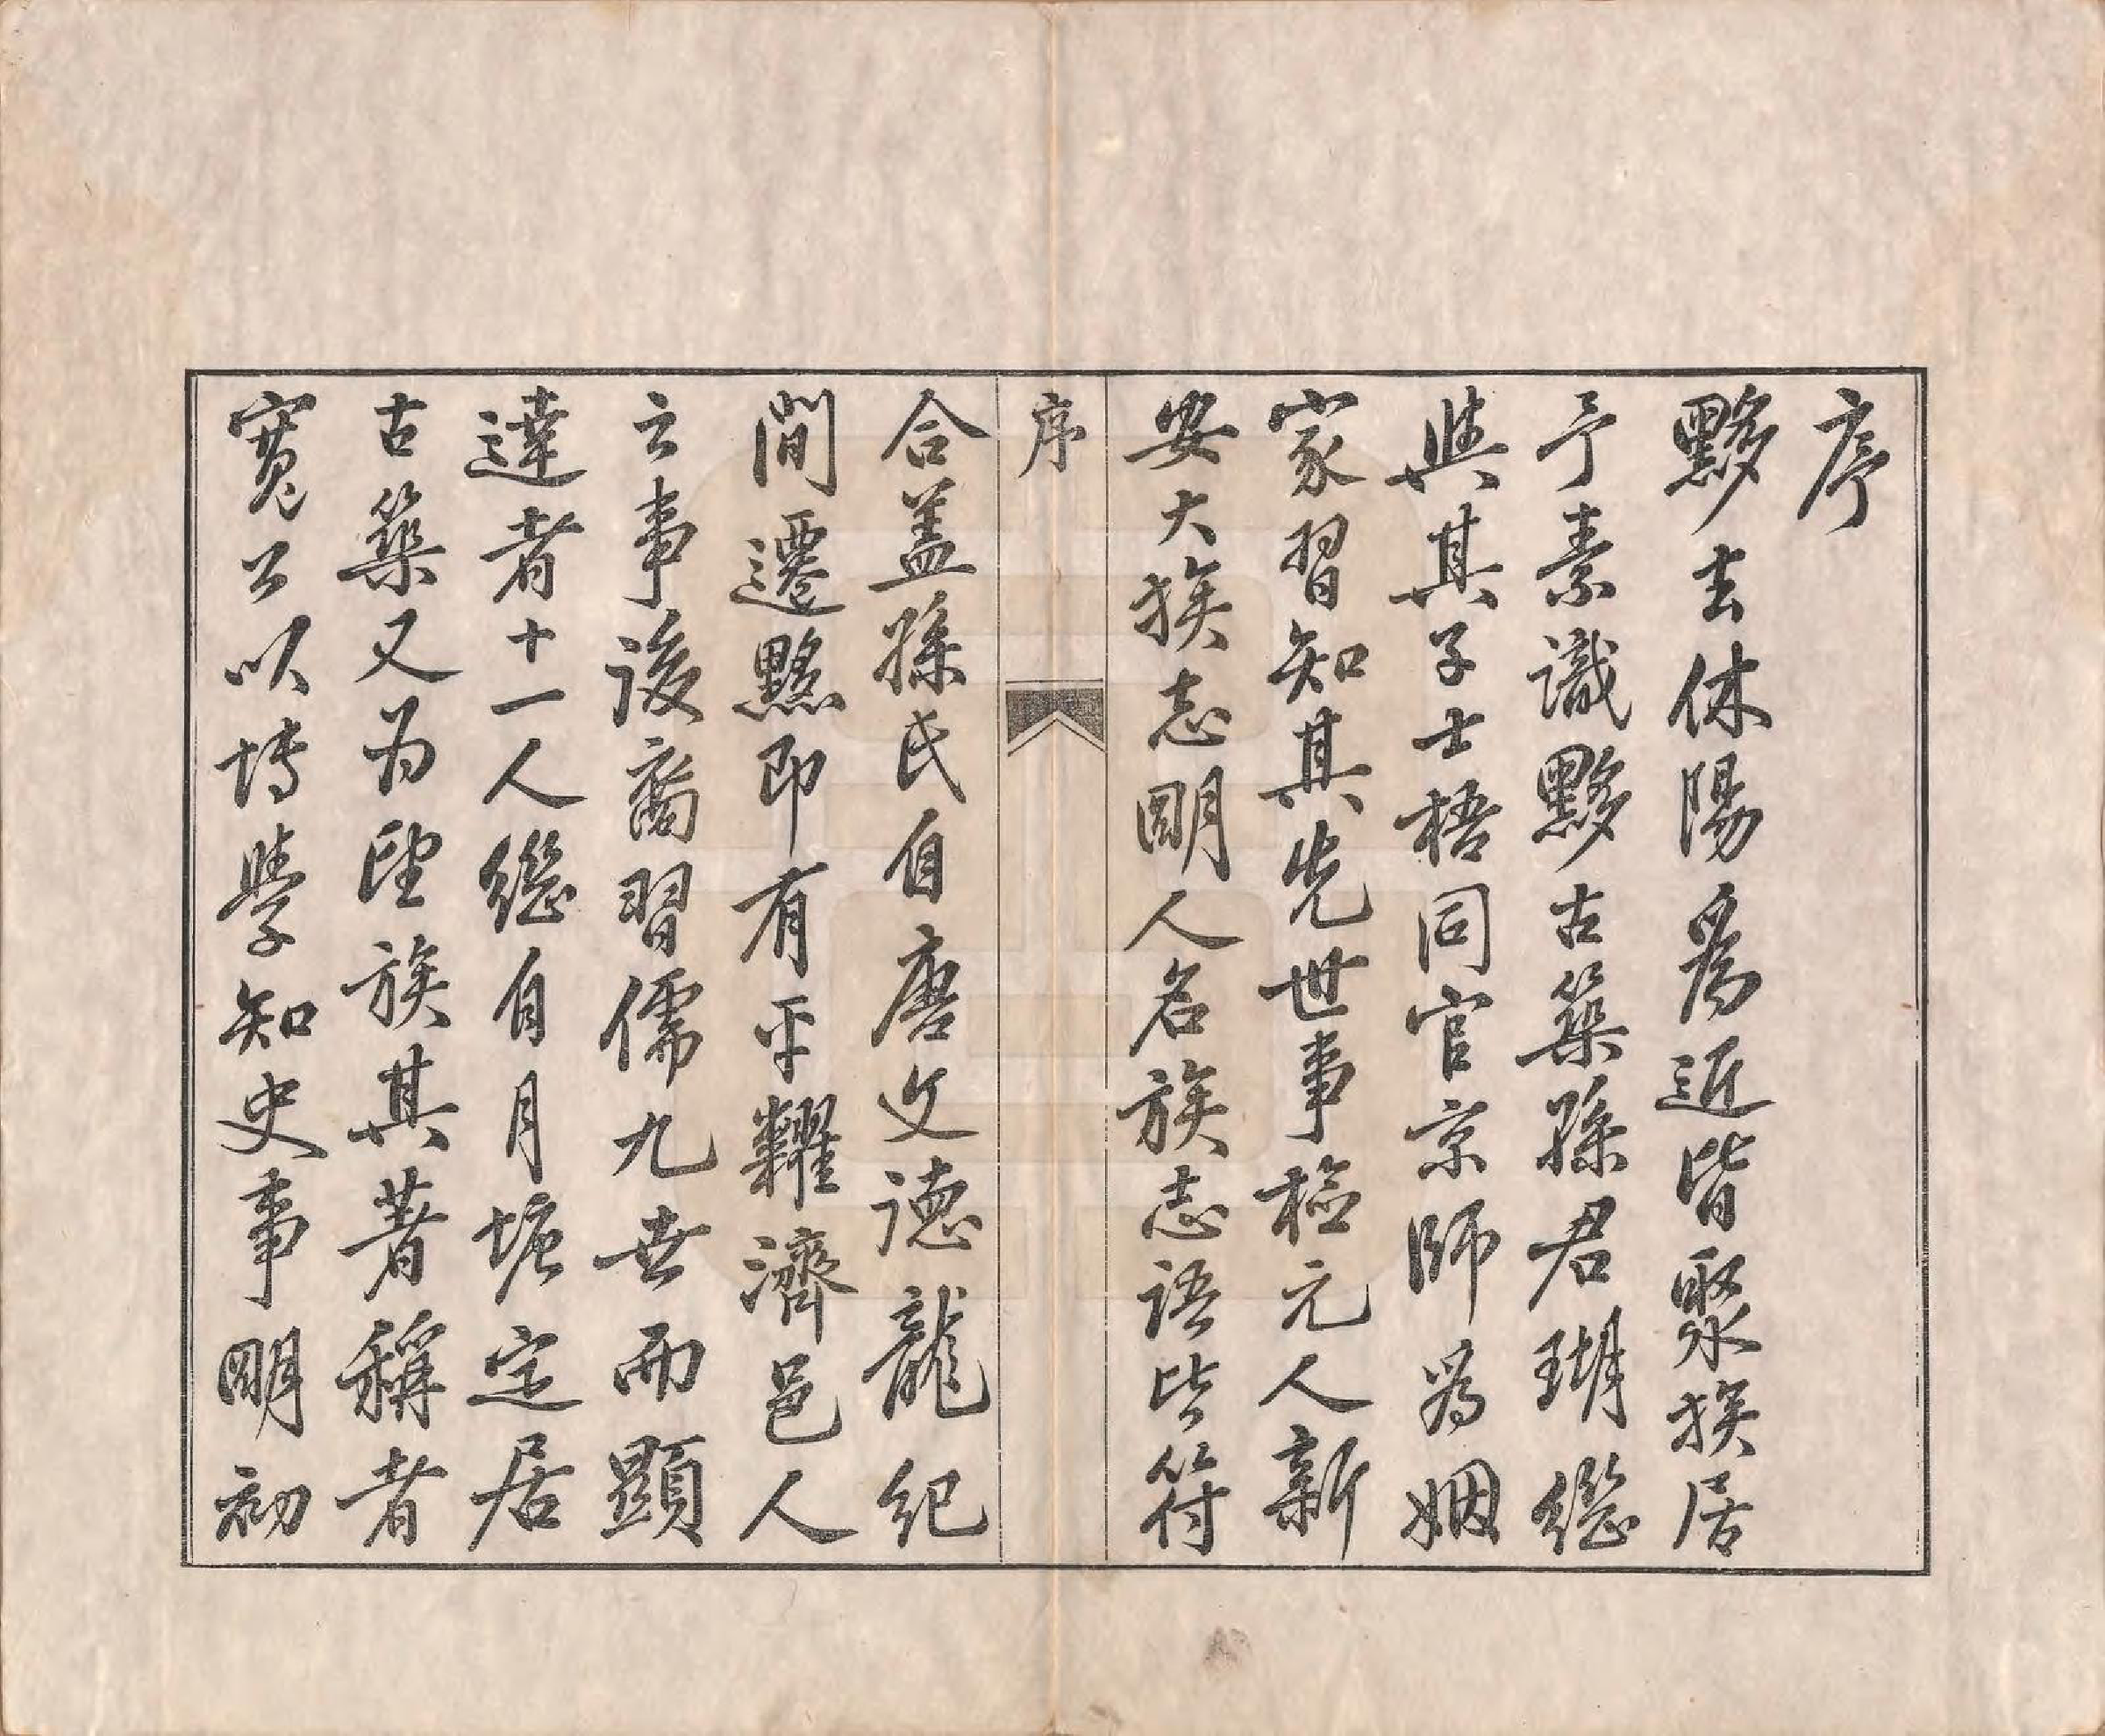 序
黟去休陽爲近皆聚族居
予素識黟古築孫君瑚繼
與其子士梧同官京師爲姻
家習知其先世事檢元人新
安大族志明人名族志語皆符
序
合蓋孫氏自唐文德龍紀
間遷黟即有平糶濟邑人
之事後裔習儒九世而顯
達者十一人繼自月塘定居
古築又为望族其著稱者
寬公以博學知史事明初